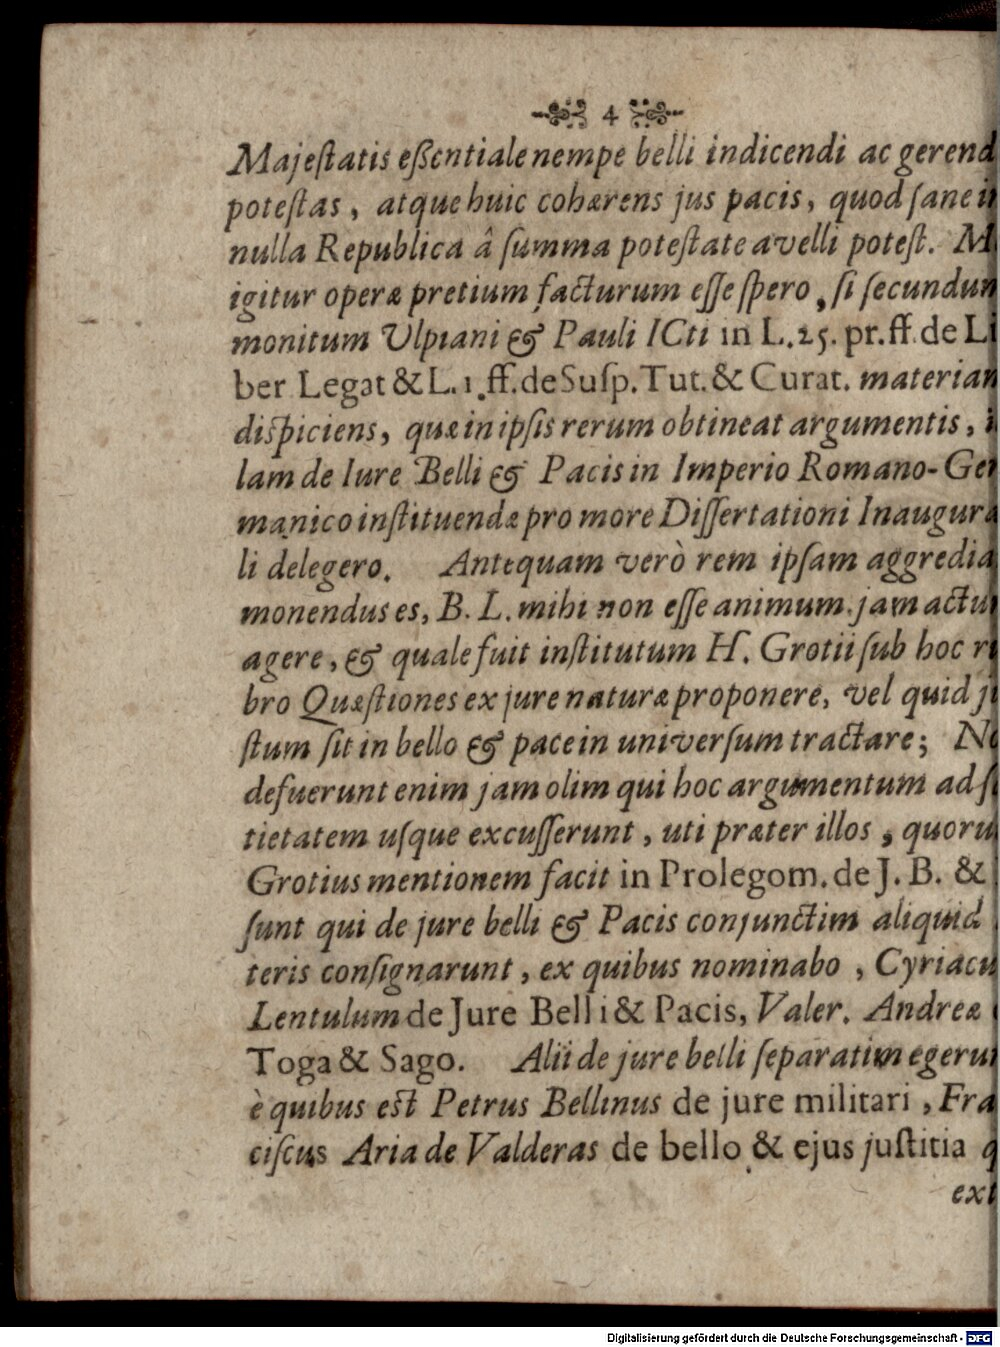 4
Majeſtatis eßentiale nempe belli indicendi ac gerend
poteſtas, atque huic cohærens jus pacis, quod ſane i
nulla Republica â ſumma poteſtate avelli poteſt. M
igitur operæ pretium facturum eſſe ſpero, ſi ſecundun
monitum Ulpiani & Pauli ICti in L. 25. pr. ff. de Li
ber Legat & L. 1. ff. de Suſp. Tut. & Curat. materian
diſpiciens, quæ in ipſis rerum obtineat argumentis, i
lam de Iure Belli & Pacis in Imperio Romano-Ger
manico inſtituendæ pro more Diſſertationi Inaugura
li delegero. Antequam verò rem ipſam aggredia
monendus es, B. L. mihi non eſſe animum jam actu
agere, & quale fuit inſtitutum H. Grotii ſub hoc r
bro Quæſtiones ex jure naturæ proponere, vel quid j
ſtum ſit in bello & pace in univerſum tractare; No
defuerunt enim jam olim qui hoc argumentum ad ſ
tietatem uſque excuſſerunt, uti præter illos, quoru
Grotius mentionem facit in Prolegom. de J. B. &
ſunt qui de jure belli & Pacis conjunctim aliquid
teris conſignarunt, ex quibus nominabo, Cyriacu
Lentulum de Jure Belli & Pacis, Valer. Andreæ
Toga & Sago. Alii de jure belli ſeparatim egerun
è quibus eſt Petrus Bellinus de jure militari, Fra
ciſcus Aria de Valderas de bello & ejus juſtitia q
ext
Digitalisierung gefördert durch die Deutsche Forschungsgemeinschaft - DFG